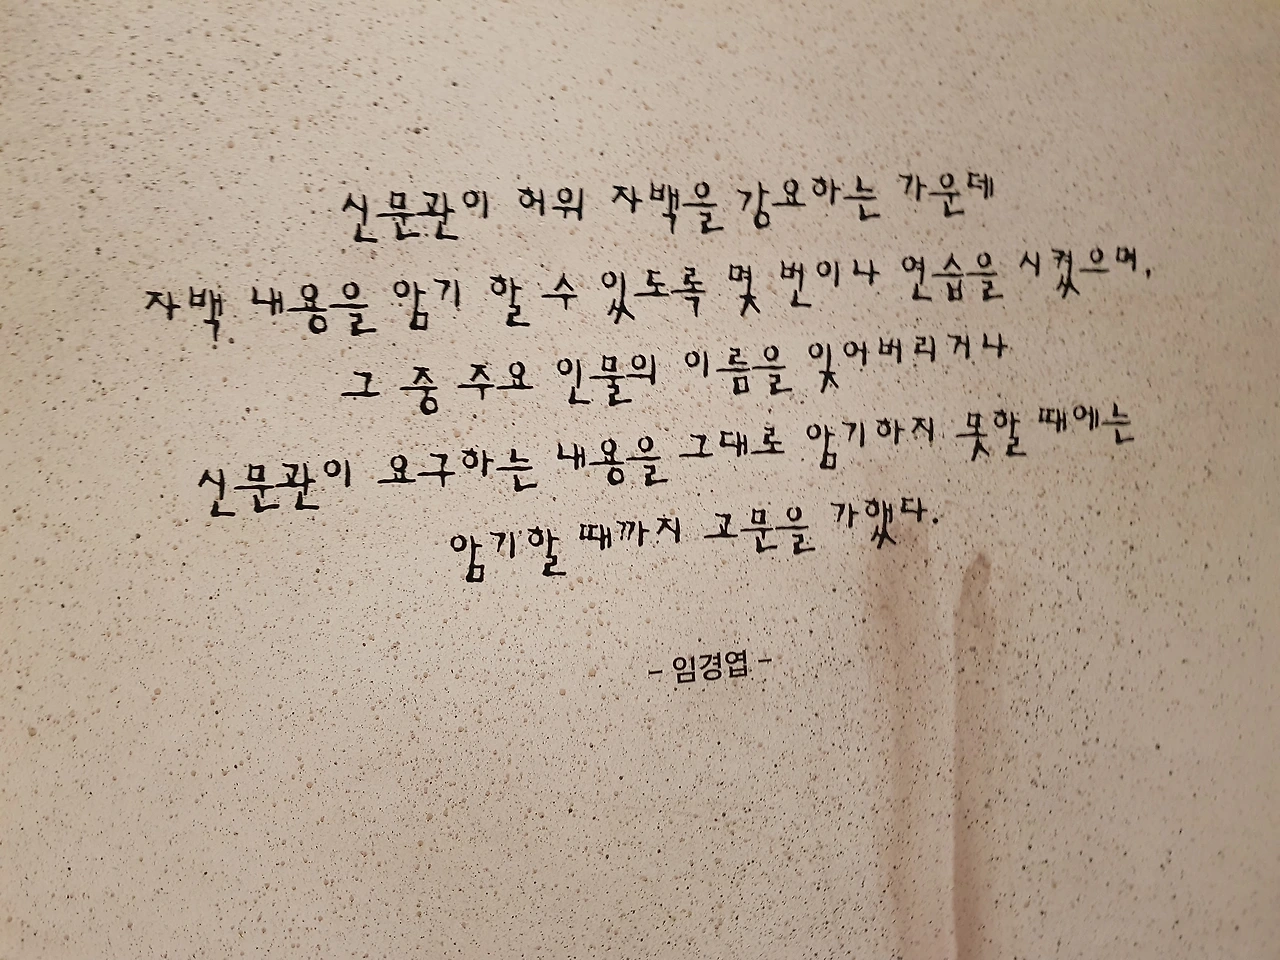 신문관이 허위 자백을 강요하는 가운데
자백 내용을 암기 할 수 있도록 몇 번이나 연습을 시켰으며,
그 중 주요 인물의 이름을 잊어버리거나
신문관이 요구하는 내용을 그대로 암기하지 못할 때에는
암기할 때까지 고문을 가했다.
- 임경엽 -